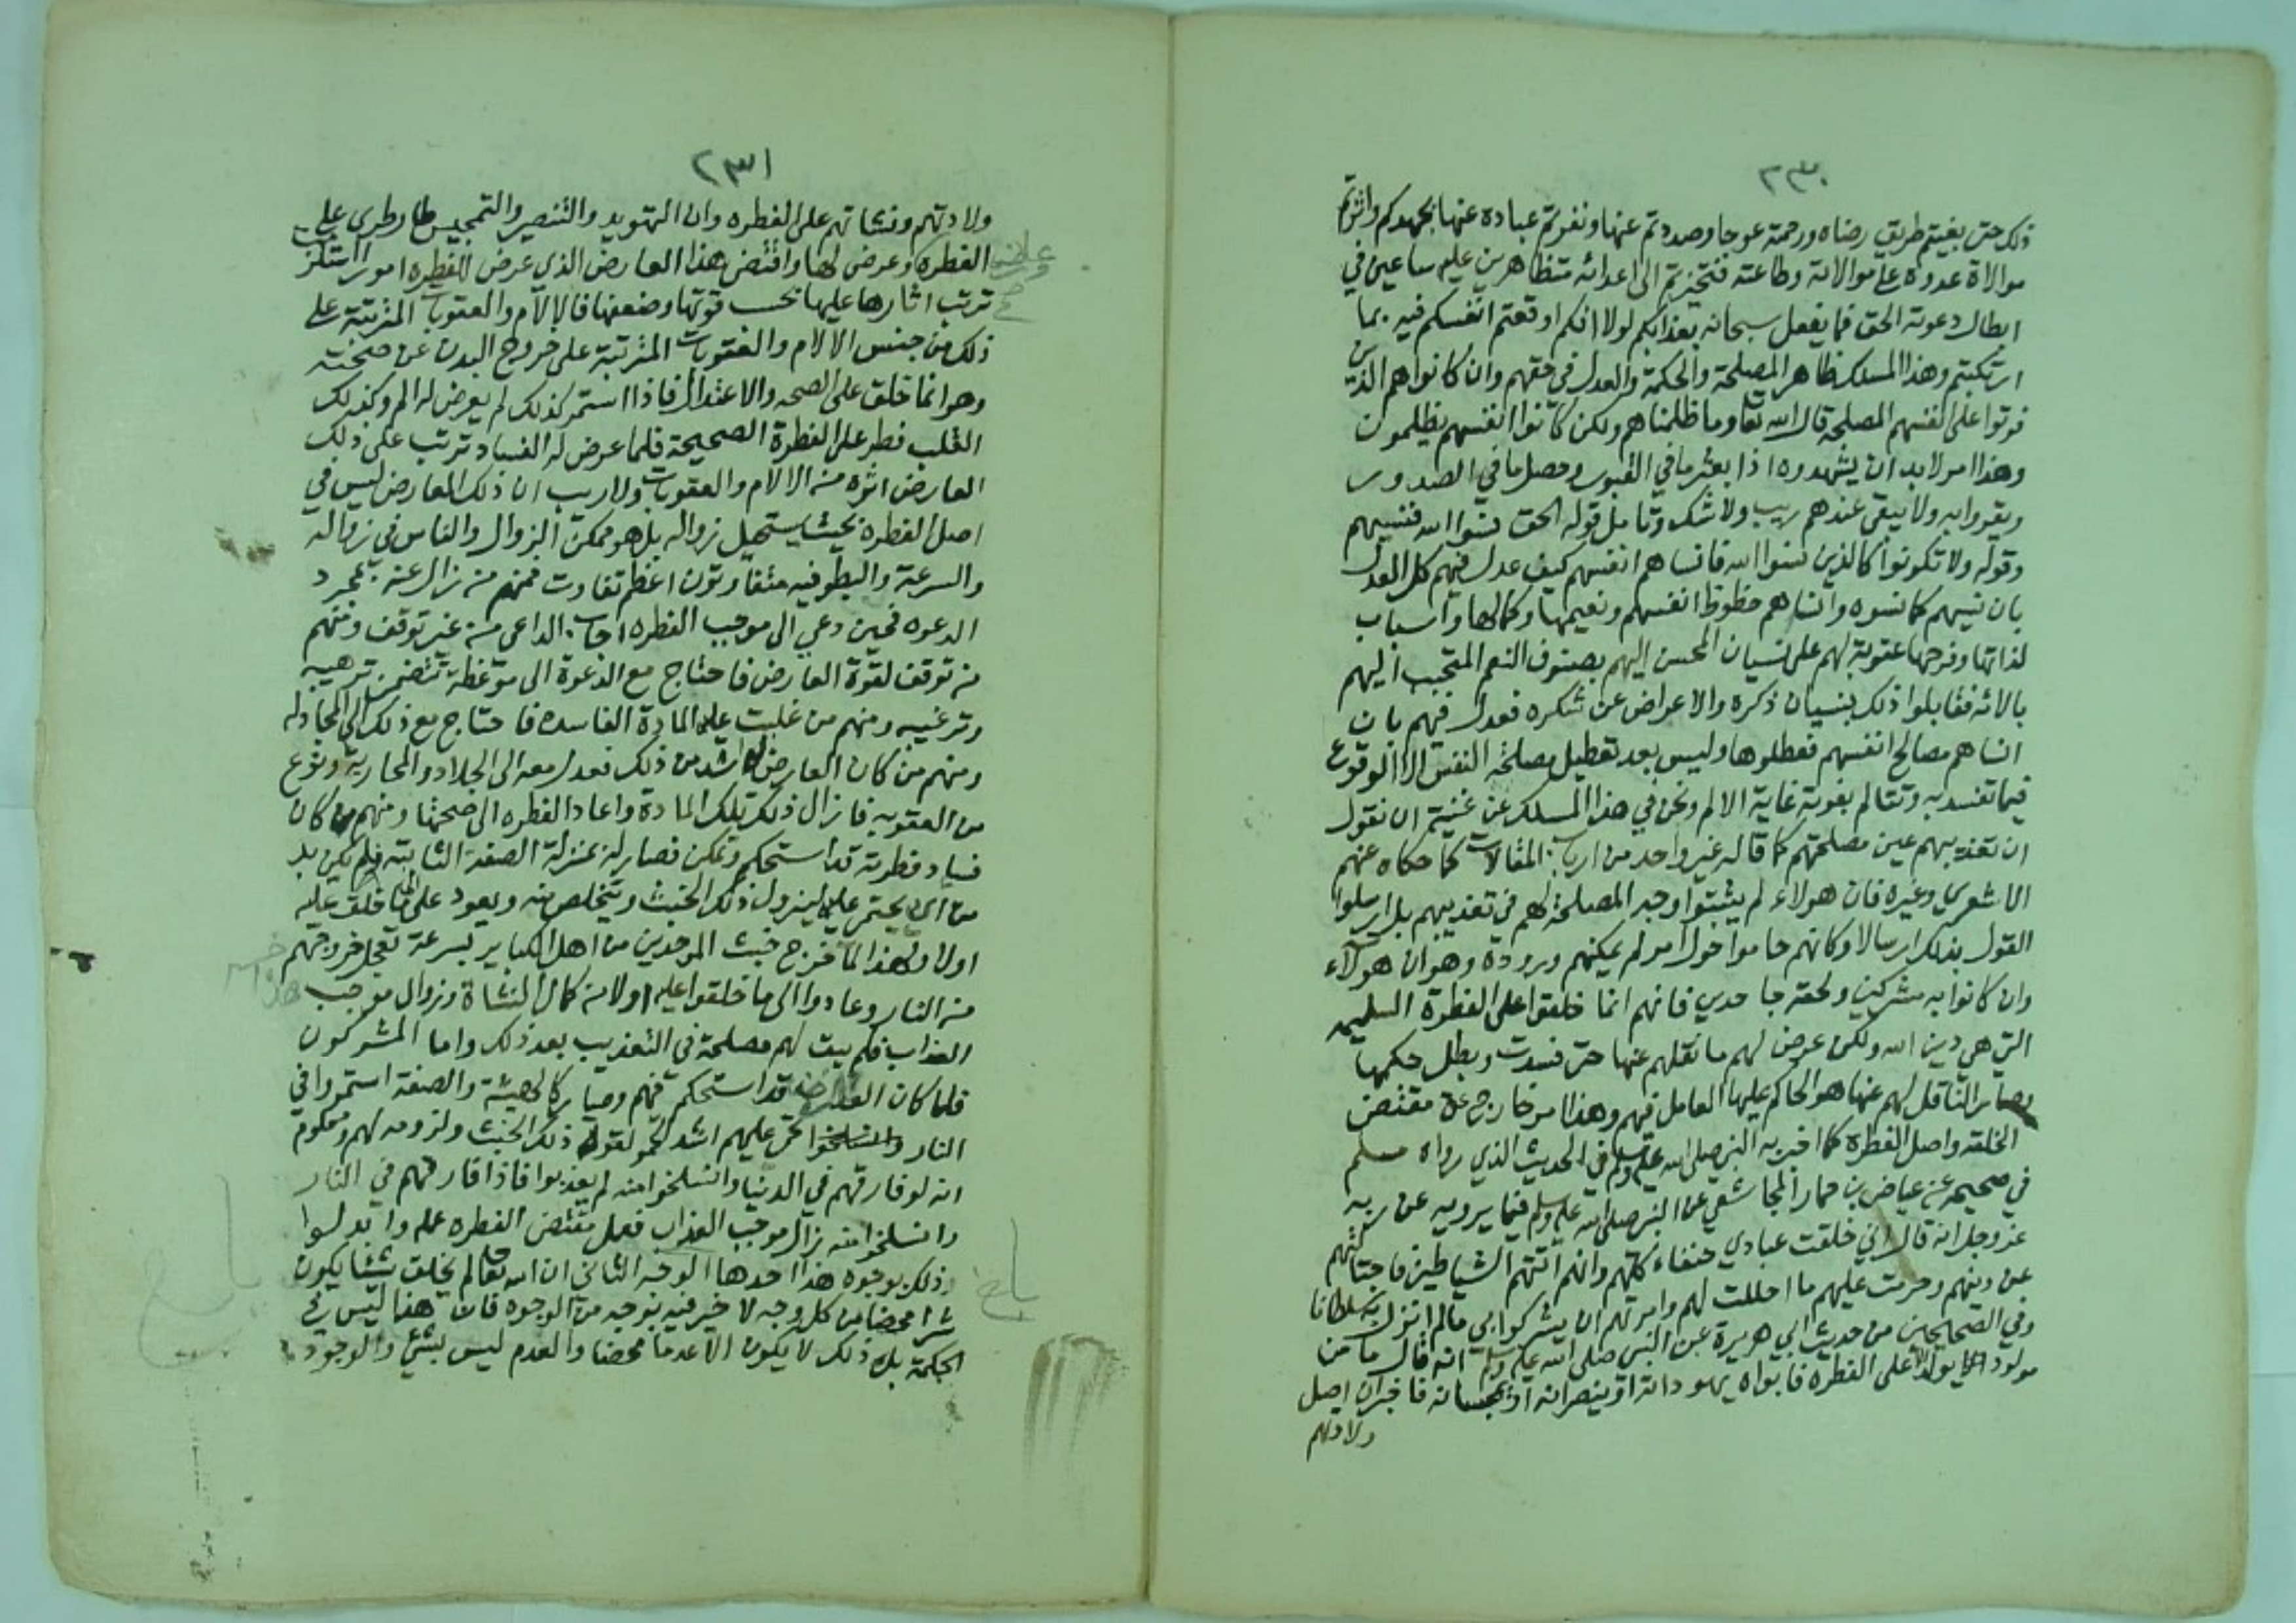 ٢٣٠
ذلك حتى بغيتم طريق رضاه ورحمته عوجا وصددتم عنها ونفرتم عباده عنها بجهدكم واثرتم
موالاة عدوه على موالاته وطاعته فتحيزتم الى اعدائه متظاهرين عليه ساعين في
ابطال دعوته الحق فما يفعل سبحانه بعذابكم لولا انكم اوقعتم انفسكم فيه بما
ارتكبتم وهذا المسلك ظاهر المصلحة والحكمة والعدل في حقهم وان كانوا هم الذين
فوتوا على انفسهم المصلحة قال الله تعا وما ظلمناهم ولكن كانوا انفسهم يظلمون
وهذا امر لا بد ان يشهدوه اذا بعثر ما في القبور وحصل ما في الصدور
ويقروا به ولا يبقى عندهم ريب ولا شك وتامل قوله الحق نسوا الله فنسيهم
وقوله ولا تكونوا كالذين نسوا الله فانساهم انفسهم كيف عدل فيهم كل العدل
بان نسيهم كما نسوه وانساهم حظوظ انفسهم ونعيمها وكمالها واسباب
لذاتها وفرحها عقوبة لهم على نسيان المحسن اليهم بصنوف النعم المتحبب اليهم
بالائه فقابلوا ذلك بنسيان ذكره والاعراض عن شكره فعدل فيهم بان
انساهم مصالح انفسهم فعطلوها وليس بعد تعطيل مصلحة النفس الا الوقوع
فيما تفسد به وتتالم بفوته غاية الالم ونحن في هذا المسلك في غنيتم ان نقول
ان تعذيبهم عين مصلحتهم كما قاله غير واحد من ارباب المقالات كما حكاه عنهم
الاشعري وغيره فان هولاء لم يثبتوا وجه المصلحة لهم في تعذيبهم بل ارسلوا
القول بذلك ارسالا وكانهم حاموا حول امر لم يمكنهم وروده وهو ان هولاء
وان كانوا به مشركين ولحقه جاحدين فانهم انما خلقوا على الفطرة السليمه
التي هي دين الله ولكن عرض لهم ما نقلهم عنها حتى فسدت وبطل حكمها
وصار الناقل لهم عنها هو الحاكم عليها العامل فيهم وهذا امر خارج عن مقتضى
الخلقه واصل الفطره كما اخبر به النبي صلى الله عليه وسلم في الحديث الذي رواه مسلم
في صحيحه عن عياض بن حمار المجاشعي عن النبي صلى الله عليه وسلم فيما يرويه عن ربه
عز وجل انه قال اني خلقت عبادي حنفاء كلهم وانهم اتتهم الشياطين فاجتالتهم
عن دينهم وحرمت عليهم ما احللت لهم وامرتهم ان يشركوا بي ما لم انزل به سلطانا
وفي الصحيحين من حديث ابي هريرة عن النبي صلى الله عليه وسلم انه قال ما من
مولود الا يولد على الفطره فابواه يهودانه او ينصرانه او يمجسانه فاخبر ان اصل
ولادتهم
٢٣١
ولادتهم ونشاتهم على الفطره وان التهويد والتنصير والتمجيس طار وطرى على
الفطره وعرض لها واقتضى هذا العارض الذي عرض للفطره امورا استلزمت
ترتب اثارها عليها بحسب قوتها وضعفها فالالام والعقوبات المترتبة على
ذلك من جنس الالام والعقوبات المترتبة على خروج البدن عن صحته
وهو انما خلق على الصحه والاعتدال فاذا استمر كذلك لم يعرض له الم وكذلك
القلب فطر على الفطرة الصحيحة فلما عرض له الفساد ترتب على ذلك
العارض اثره من الالام والعقوبات ولا ريب ان ذلك العارض ليس في
اصل الفطره بحيث يستحيل زواله بل هو ممكن الزوال والناس في زواله
والسرعة والبطو فيه متفاوتون اعظم تفاوت فمنهم من زال عنه بمجرد
الدعوه فحين دعي الى موجب الفطره اجاب الداعي من غير توقف ومنهم
من توقف لقوة العارض فاحتاج مع الدعوة الى موعظة تتضمن ترهيبه
وترغيبه ومنهم من غلبت عليه المادة الفاسده فاحتاج مع ذلك الى المجادله
ومنهم من كان العارض له اشد من ذلك فعدل معه الى الجلاد والمحاربة ونوع
من العقوبه فازال ذلك تلك المادة واعاد الفطره الى صحتها ومنهم من كان
فساد فطرته قد استحكم وتمكن فصار له بمنزلة الصفة الثابته فلم يكن بد
من ان يحتمى عليه ليزول ذلك الخبث ويتخلص منه ويعود على ما خلق عليه
اولا ولهذا لما خرج خبث الموحدين من اهل الكباير بسرعة تعجل خروجهم
من النار وعادوا الى ما خلقوا عليه اولا من كمال النشاة وزوال موجب
العذاب فلم يبق لهم مصلحة في التعذيب بعد ذلك واما المشركون
فلما كان العارض قد استحكم فيهم وصار كالهيئة والصفة استمروا في
النار يحمى عليهم اشد الحمو لقوة ذلك الخبث ولزومه لهم ومعلوم
انه لو فارقهم في الدنيا وانسلخوا منه لم يعذبوا فاذا فارقهم في النار
وانسلخوا منه زال موجب العذاب فعمل مقتضى الفطره عمله
وذلك بوجوه هذا احدها الوجه الثاني ان الله تعا لم يخلق شيئا يكون
شرا محضا من كل وجه لا خير فيه بوجه من الوجوه فان هذا ليس في
الحكمة بل ذلك لا يكون الا عدما محضا والعدم ليس بشي والوجود